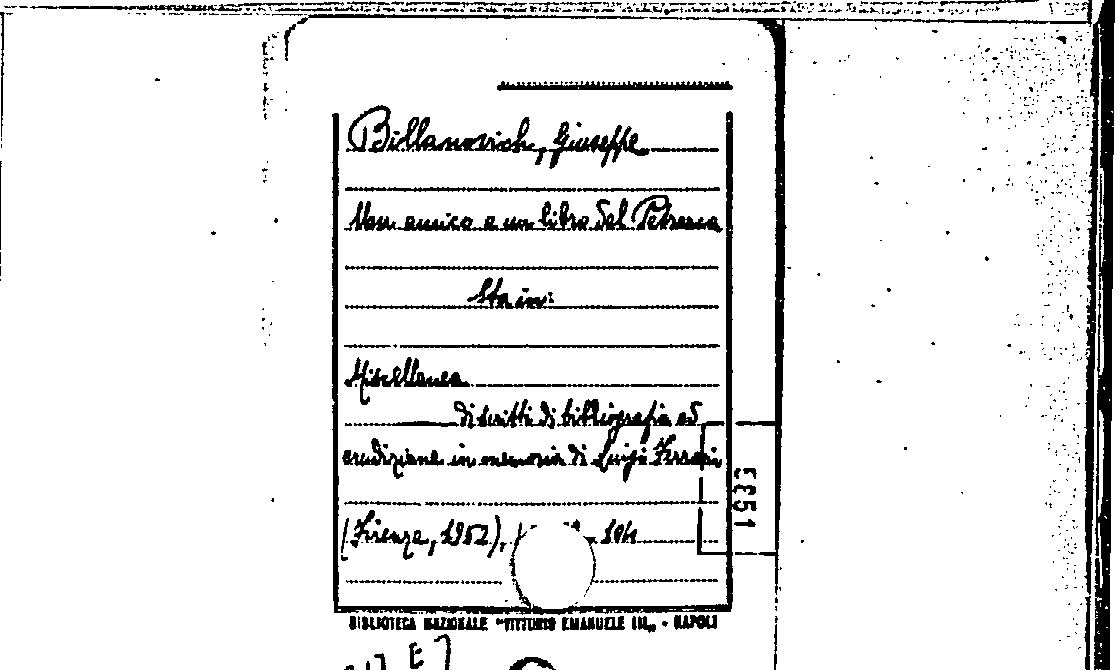 Billanovich, Giuseppe
Un amico e un libro del Petrarca
Sta in:
Miscellanea
di scritti di bibliografia ed
erudizione in memoria di Luigi Ferrari
(Firenze, 1952),
BIBLIOTECA NAZIONALE "VITTORIO EMANUELE III„ - NAPOLI